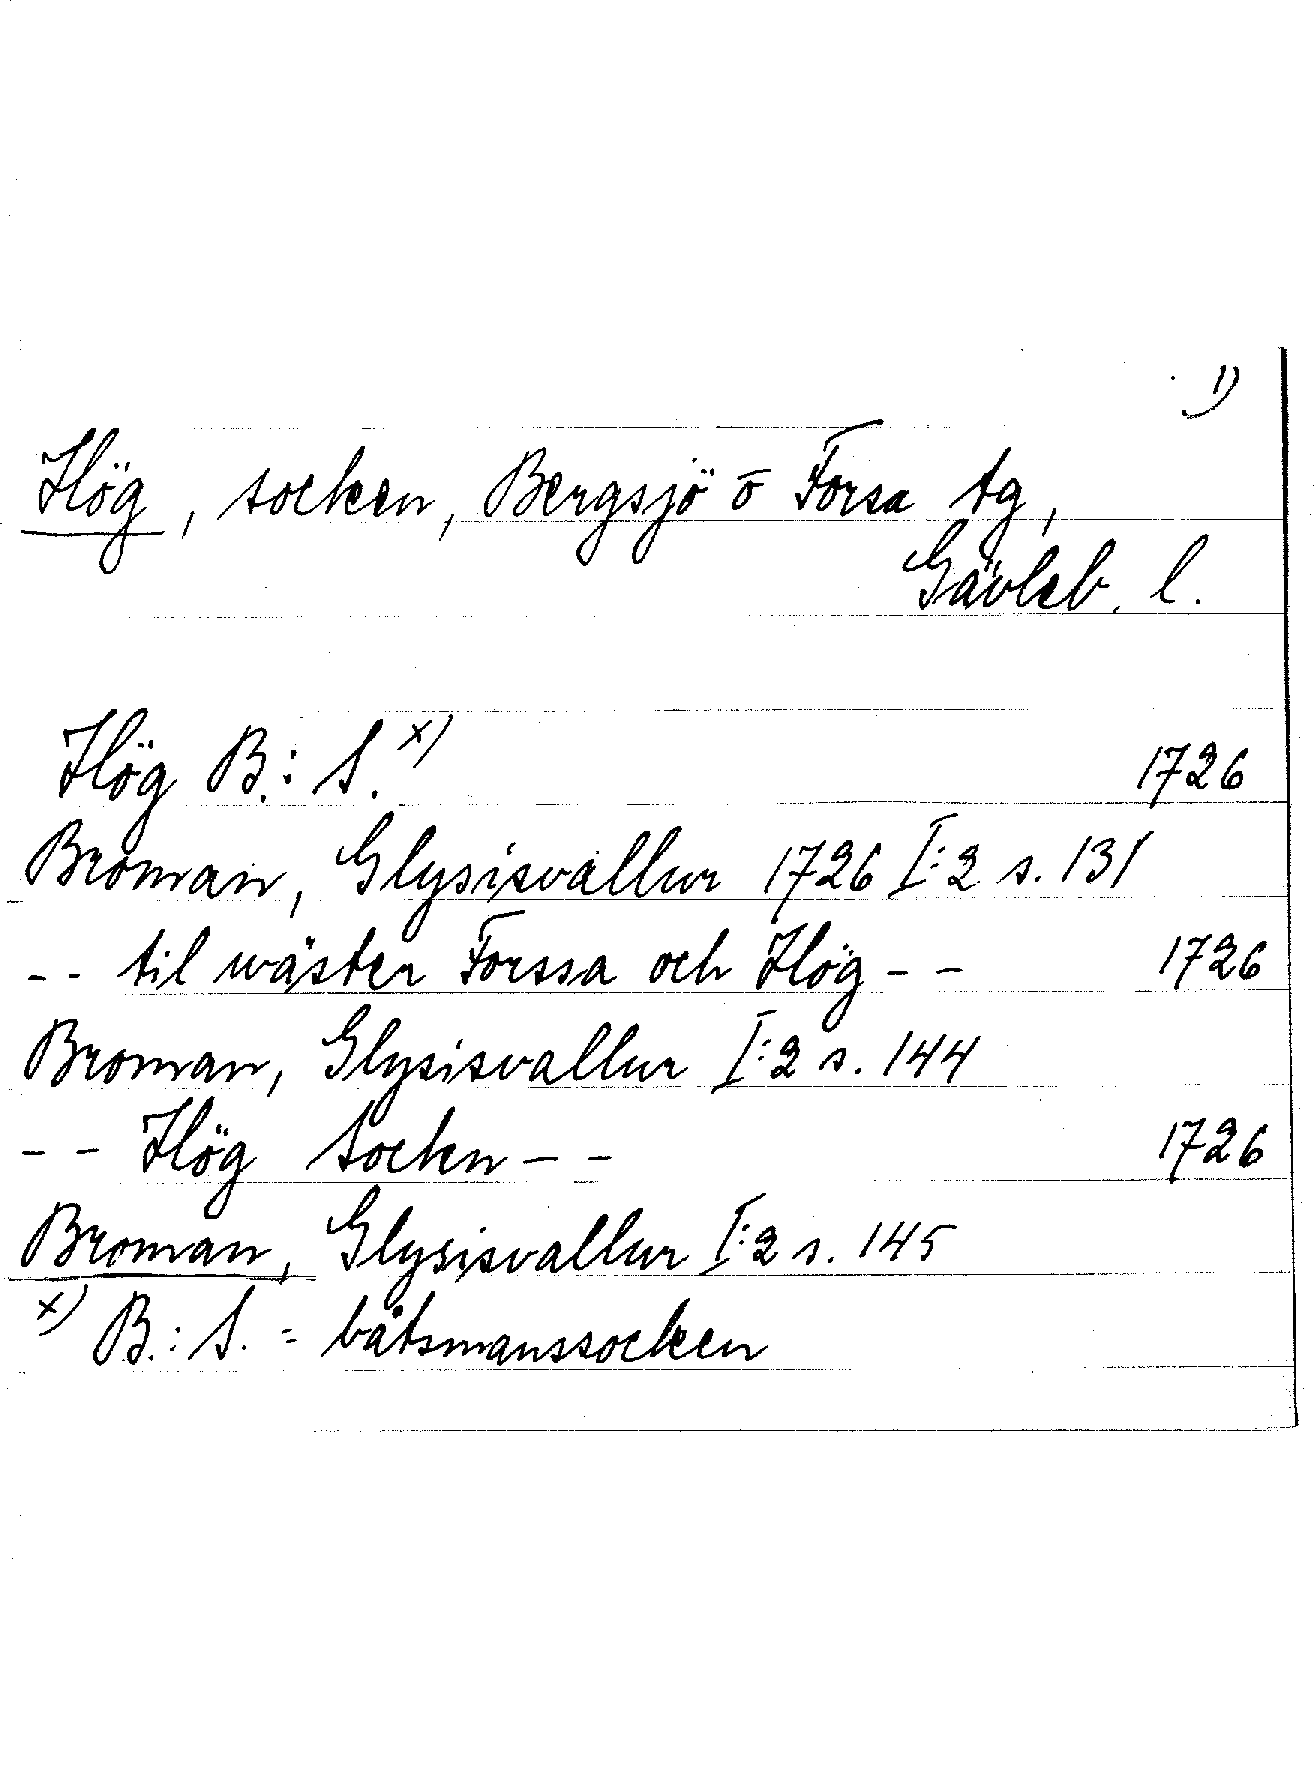 1)
Hög, socken, Bergsjö o Forsa tg,
Gävleb. l.
Hög B.: S. x) 1726
Broman, Glysisvallur 1726 I:2 s. 131
-- til wäster Forssa och Hög -- 1726
Broman, Glysisvallur I:2 s. 144
-- Hög Sockn -- 1726
Broman, Glysisvallur I:2 s. 145
x) B.: S. = båtsmanssocken